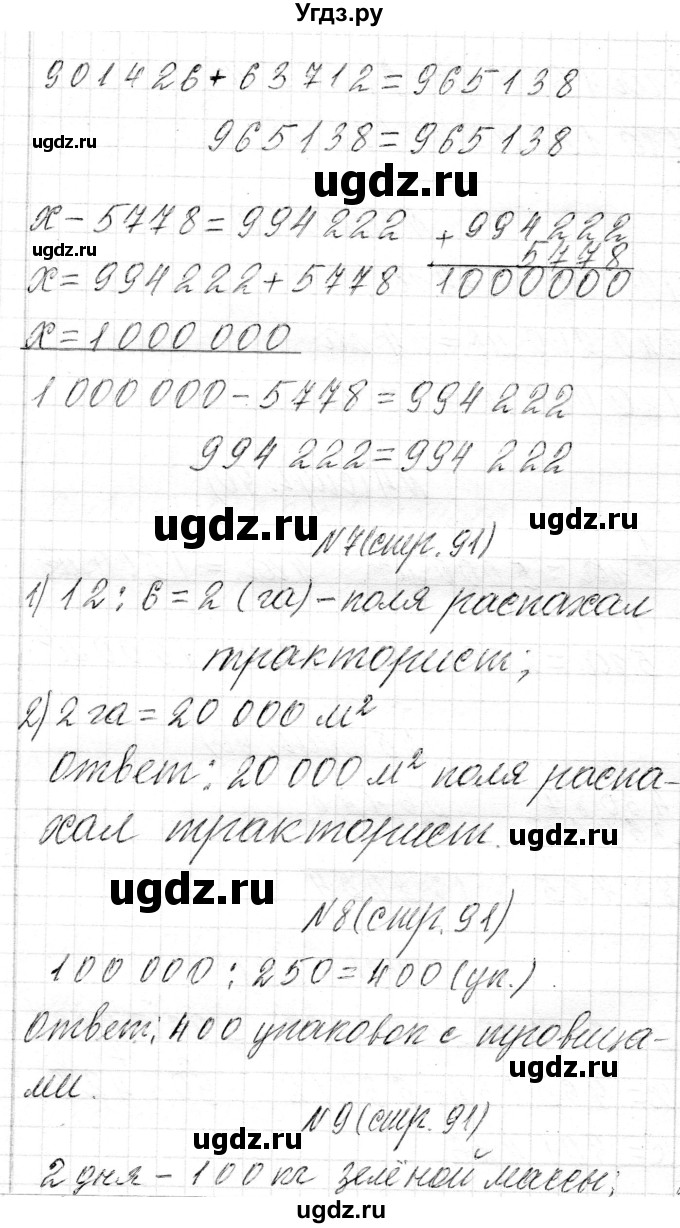 Угдз.ру
901426+63712=965138
ugdz.ru
965138=965138
ugdz.ru
х-5778=994222
+994222
ugdz.ru
5778
х=994222+5778
1000000
х=1000 000
1 000 000-5778=994 222
994 222=994 222
ugdz.ru
ugdz.ru
N7(стр.91)
1) 12:6=2 (га)-поля распахал
тракторист;
2) 2 га=20 000 м²
Ответ: 20 000 м² поля распа-
хал тракторист.
ugdz.ru
ugdz.ru
N8(стр.91)
100 000:250=400(уп.).
Ответ: 400 упаковок с пуговица-
ugdz.ru
ми.
N9(стр.91)
ugdz.ru
2 дня-100 кг зелёной массы;
ugdz.ru